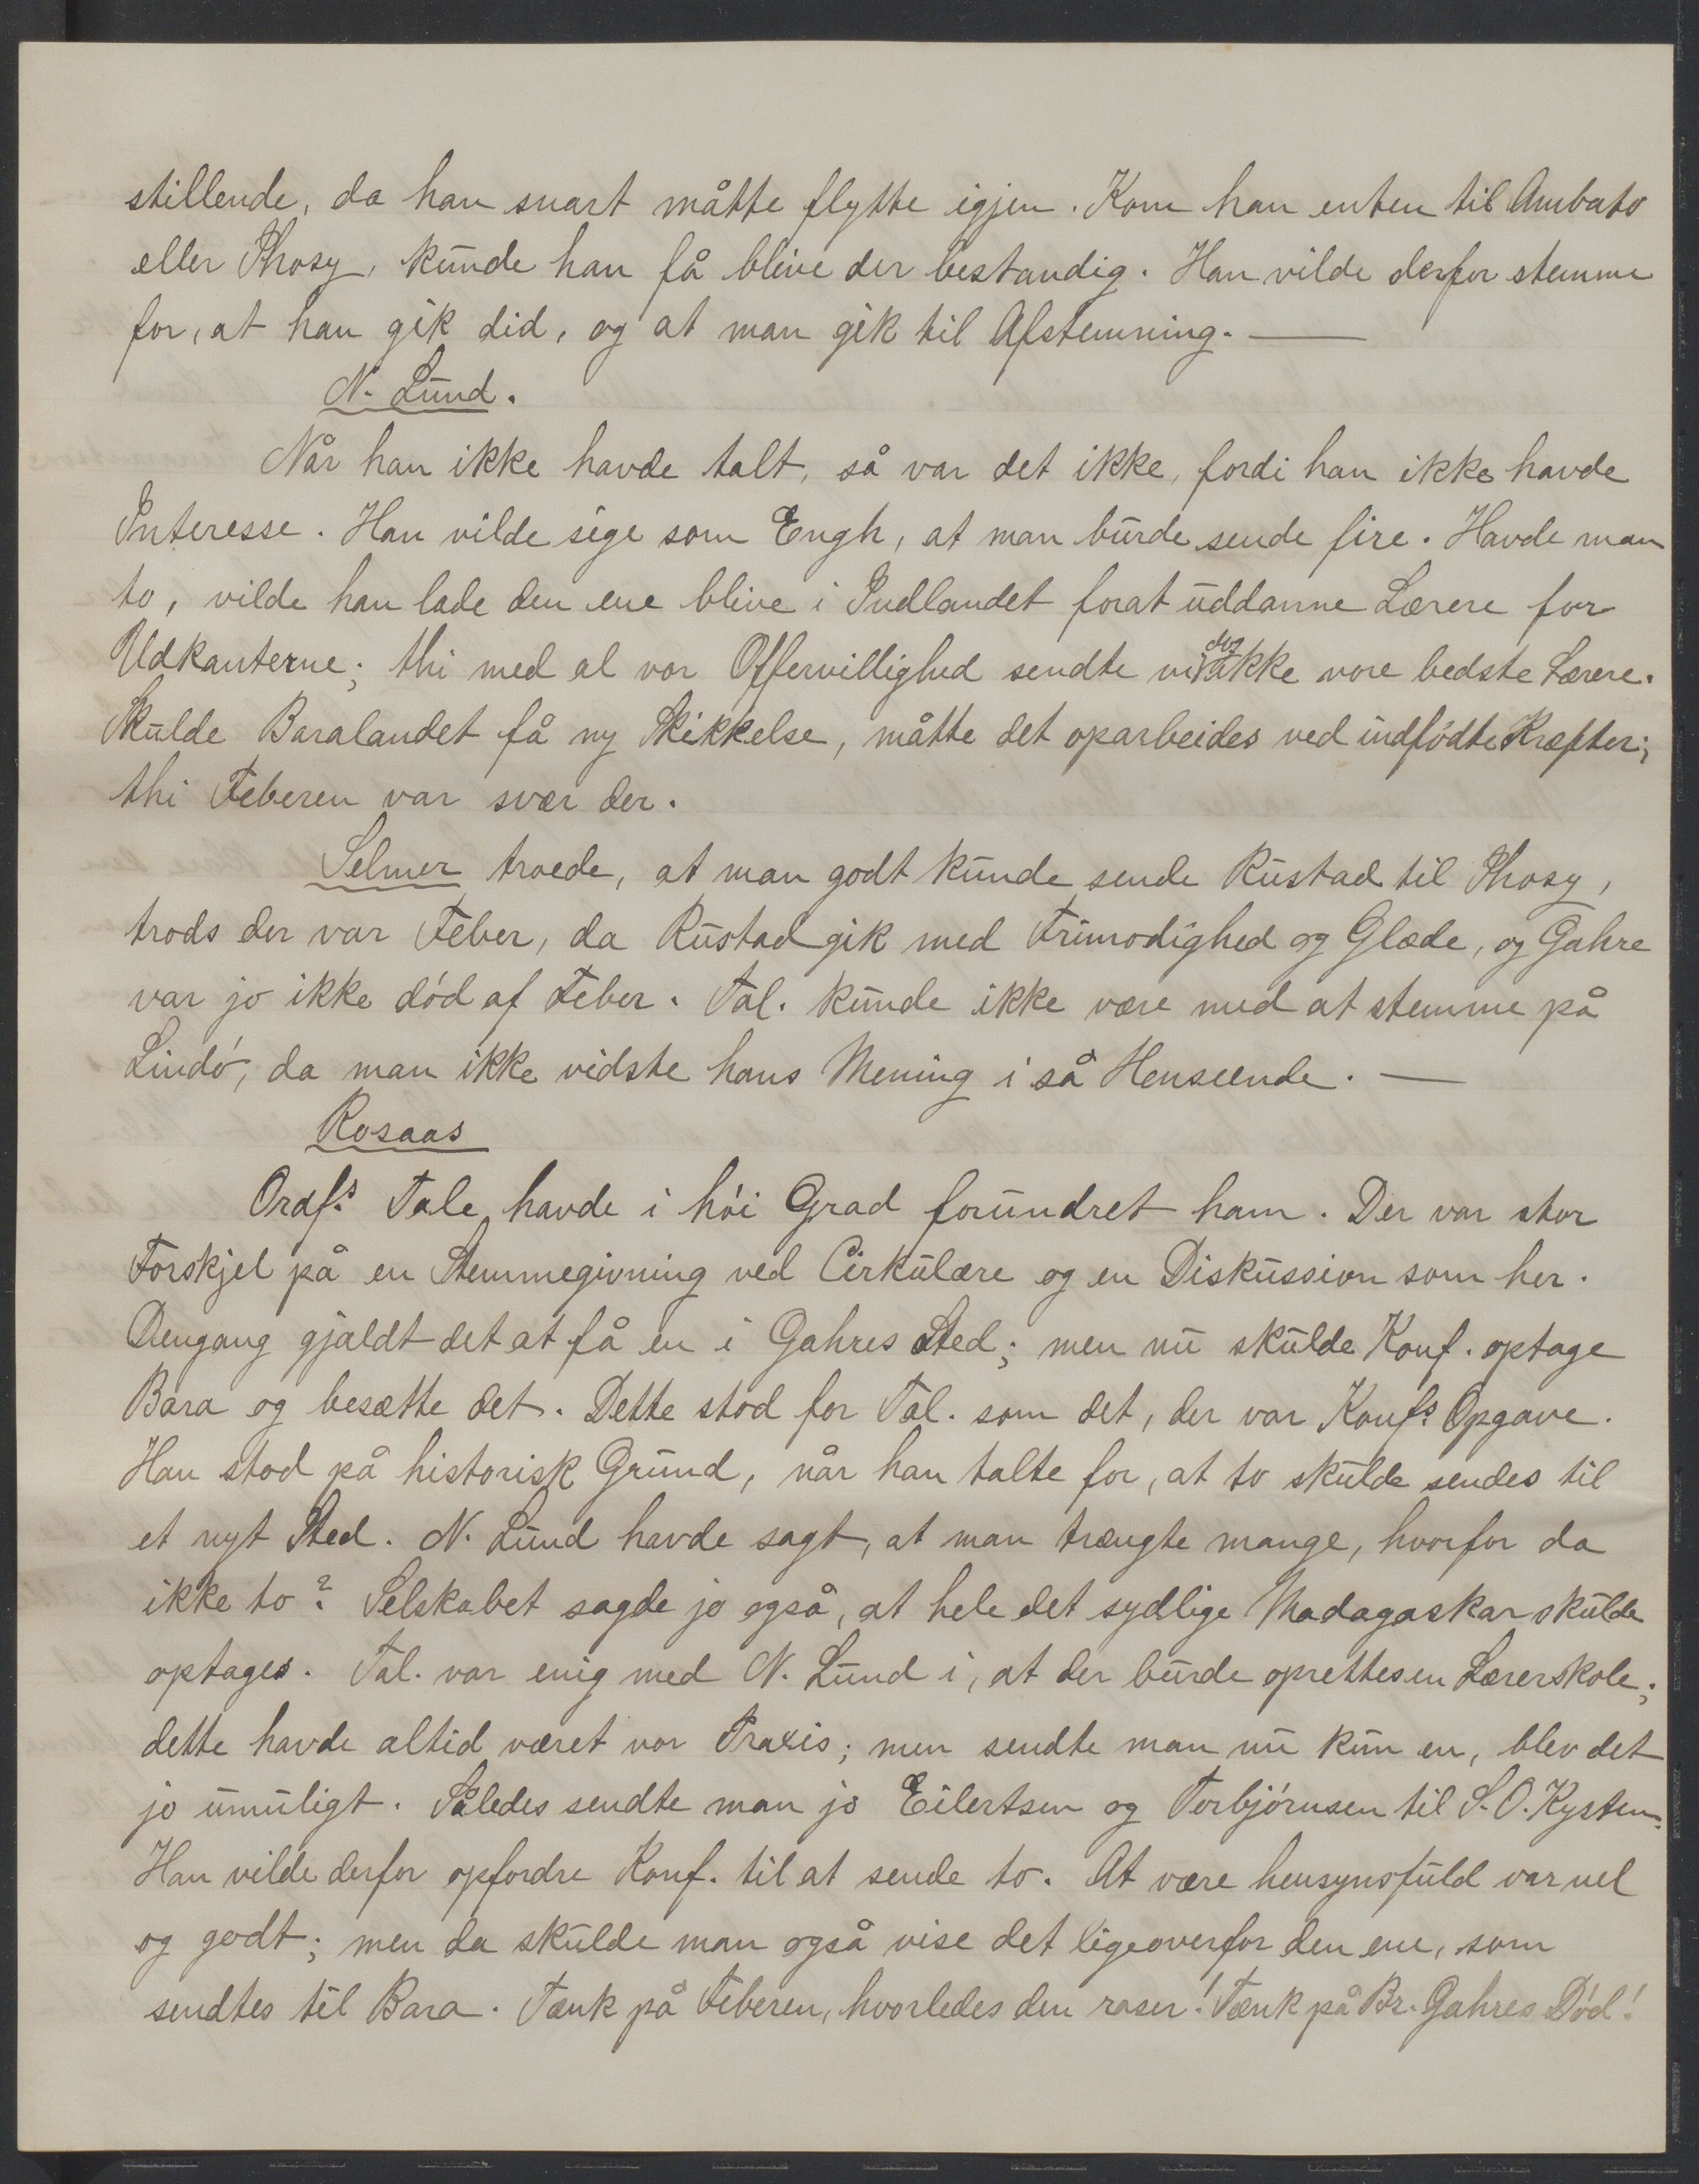 stillende, da han snart måtte flytte igjen. Kom han enten til Ambato
eller Ihosy, kunde han få blive der bestandig. Han vilde derfor stemme
for, at han gik did, og at man gik til Afstemning. —
N. Lund.
Når han ikke havde talt, så var det ikke, fordi han ikke havde
Interesse. Han vilde sige som Engh, at man burde sende fire. Havde man
to, vilde han lade den ene blive i Indlandet forat uddanne Lærere for
Udkanterne; thi med al vor Offervillighed sendte vi dog ikke vore bedste Lærere.
Skulde Baralandet få ny Skikkelse, måtte det oparbeides ved indfødte Kræfter;
thi Feberen var svær der.
Selmer troede, at man godt kunde sende Rustad til Ihosy,
trods der var Feber, da Rustad gik med Frimodighed og Glæde, og Gahre
var jo ikke død af Feber. Tal. kunde ikke være med at stemme på
Lindø, da man ikke vidste hans Mening i så Henseende. —
Rosaas
Ordf.s Tale havde i høi Grad forundret ham. Der var stor
Forskjel på en Stemmegivning ved Cirkulære og en Diskussion som her.
Dengang gjaldt det at få en i Gahres Sted; men nu skulde Konf. optage
Bara og besætte det. Dette stod for Tal. som det, der var Konf.s Opgave.
Han stod på historisk Grund, når han talte for, at to skulde sendes til
et nyt Sted. N. Lund havde sagt, at man trængte mange, hvorfor da
ikke to? Selskabet sagde jo også, at hele det sydlige Madagaskar skulde
optages. Tal. var enig med N. Lund i, at der burde oprettes en Lærerskole;
dette havde altid været vor Praxis; men sendte man nu kun en, blev det
jo umuligt. Således sendte man jo Eilertsen og Torbjørnsen til S.O. Kysten.
Han vilde derfor opfordre Konf. til at sende to. At være hensynsfuld var vel
og godt; men da skulde man også vise det ligeoverfor den ene, som
sendtes til Bara. Tænk på Feberen, hvorledes den raser! Tænk på Br. Gahres Død!